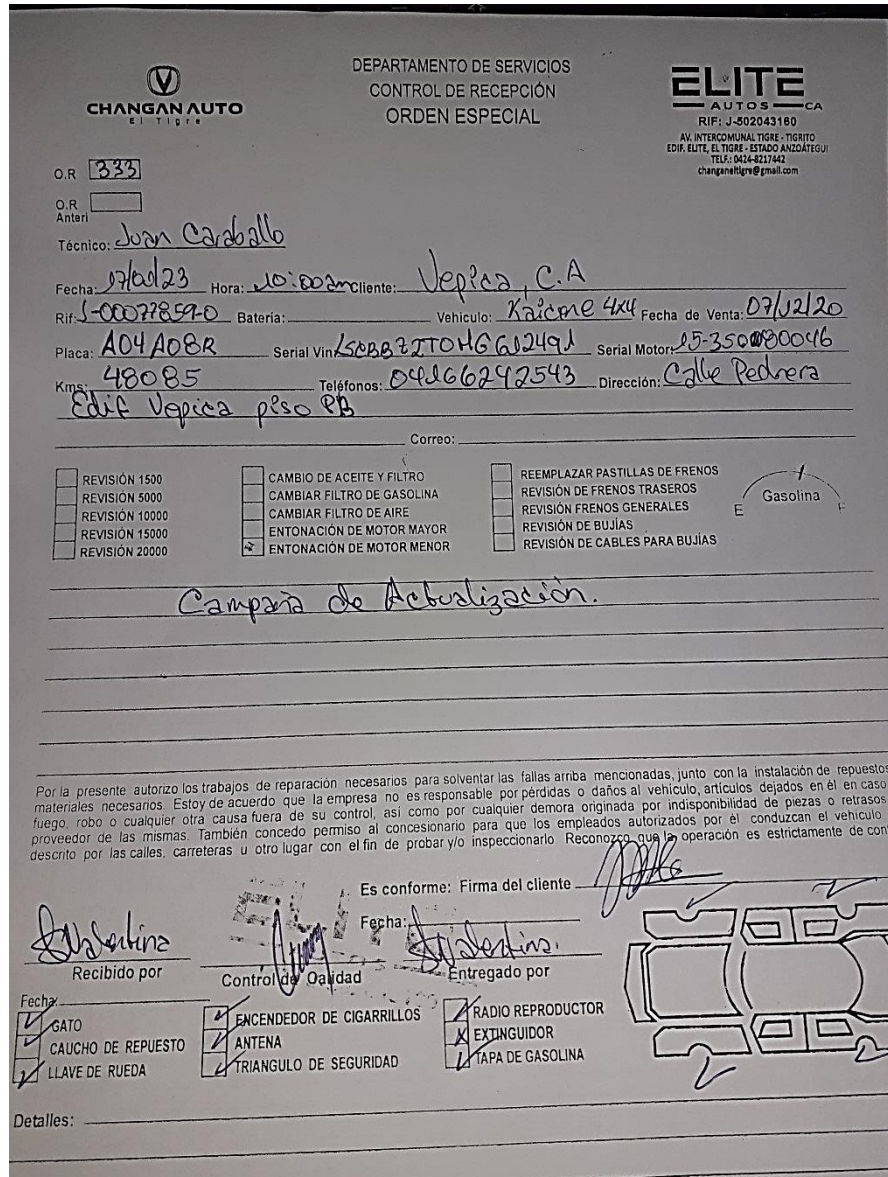 CHANGAN AUTO
El Tigre
DEPARTAMENTO DE SERVICIOS
CONTROL DE RECEPCIÓN
ORDEN ESPECIAL
ELITE
AUTOS CA
RIF: J-502043160
AV. INTERCOMUNAL TIGRE - TIGRITO
EDIF. ELITE, EL TIGRE - ESTADO ANZOÁTEGUI
TELF.: 0424-8217442
changaneltigre@gmail.com
O.R 333
O.R
Anteri
Técnico: Juan Caraballo
Fecha: 17/01/23 Hora: 10:00am Cliente: Vepica, C.A
Rif: J-00077859-0 Bateria: Vehiculo: Kaicene 4x4 Fecha de Venta: 07/12/20
Placa: A04A08R Serial Vin: Serial Motor:
Kms: 48085 Teléfonos: 04166242543 Dirección: Calle Pedrera
Edif Vepica piso PB
Correo:
REVISIÓN 1500
REVISIÓN 5000
REVISIÓN 10000
REVISIÓN 15000
REVISIÓN 20000
CAMBIO DE ACEITE Y FILTRO
CAMBIAR FILTRO DE GASOLINA
CAMBIAR FILTRO DE AIRE
ENTONACIÓN DE MOTOR MAYOR
ENTONACIÓN DE MOTOR MENOR
REEMPLAZAR PASTILLAS DE FRENOS
REVISIÓN DE FRENOS TRASEROS
REVISIÓN FRENOS GENERALES
REVISIÓN DE BUJÍAS
REVISIÓN DE CABLES PARA BUJÍAS
E Gasolina F
Campaña de Actualización.
Por la presente autorizo los trabajos de reparación necesarios para solventar las fallas arriba mencionadas, junto con la instalación de repuestos
materiales necesarios. Estoy de acuerdo que la empresa no es responsable por pérdidas o daños al vehículo, artículos dejados en él en caso
fuego, robo o cualquier otra causa fuera de su control, así como por cualquier demora originada por indisponibilidad de piezas o retrasos
proveedor de las mismas. También concedo permiso al concesionario para que los empleados autorizados por él conduzcan el vehículo
descrito por las calles, carreteras u otro lugar con el fin de probar y/o inspeccionarlo Reconozco que la operación es estrictamente de con
Es conforme: Firma del cliente
Fecha:
SValentina
SValentina.
Recibido por
Control de Oalidad
Entregado por
Fecha:
GATO
CAUCHO DE REPUESTO
LLAVE DE RUEDA
ENCENDEDOR DE CIGARRILLOS
ANTENA
TRIANGULO DE SEGURIDAD
RADIO REPRODUCTOR
EXTINGUIDOR
TAPA DE GASOLINA
Detalles: